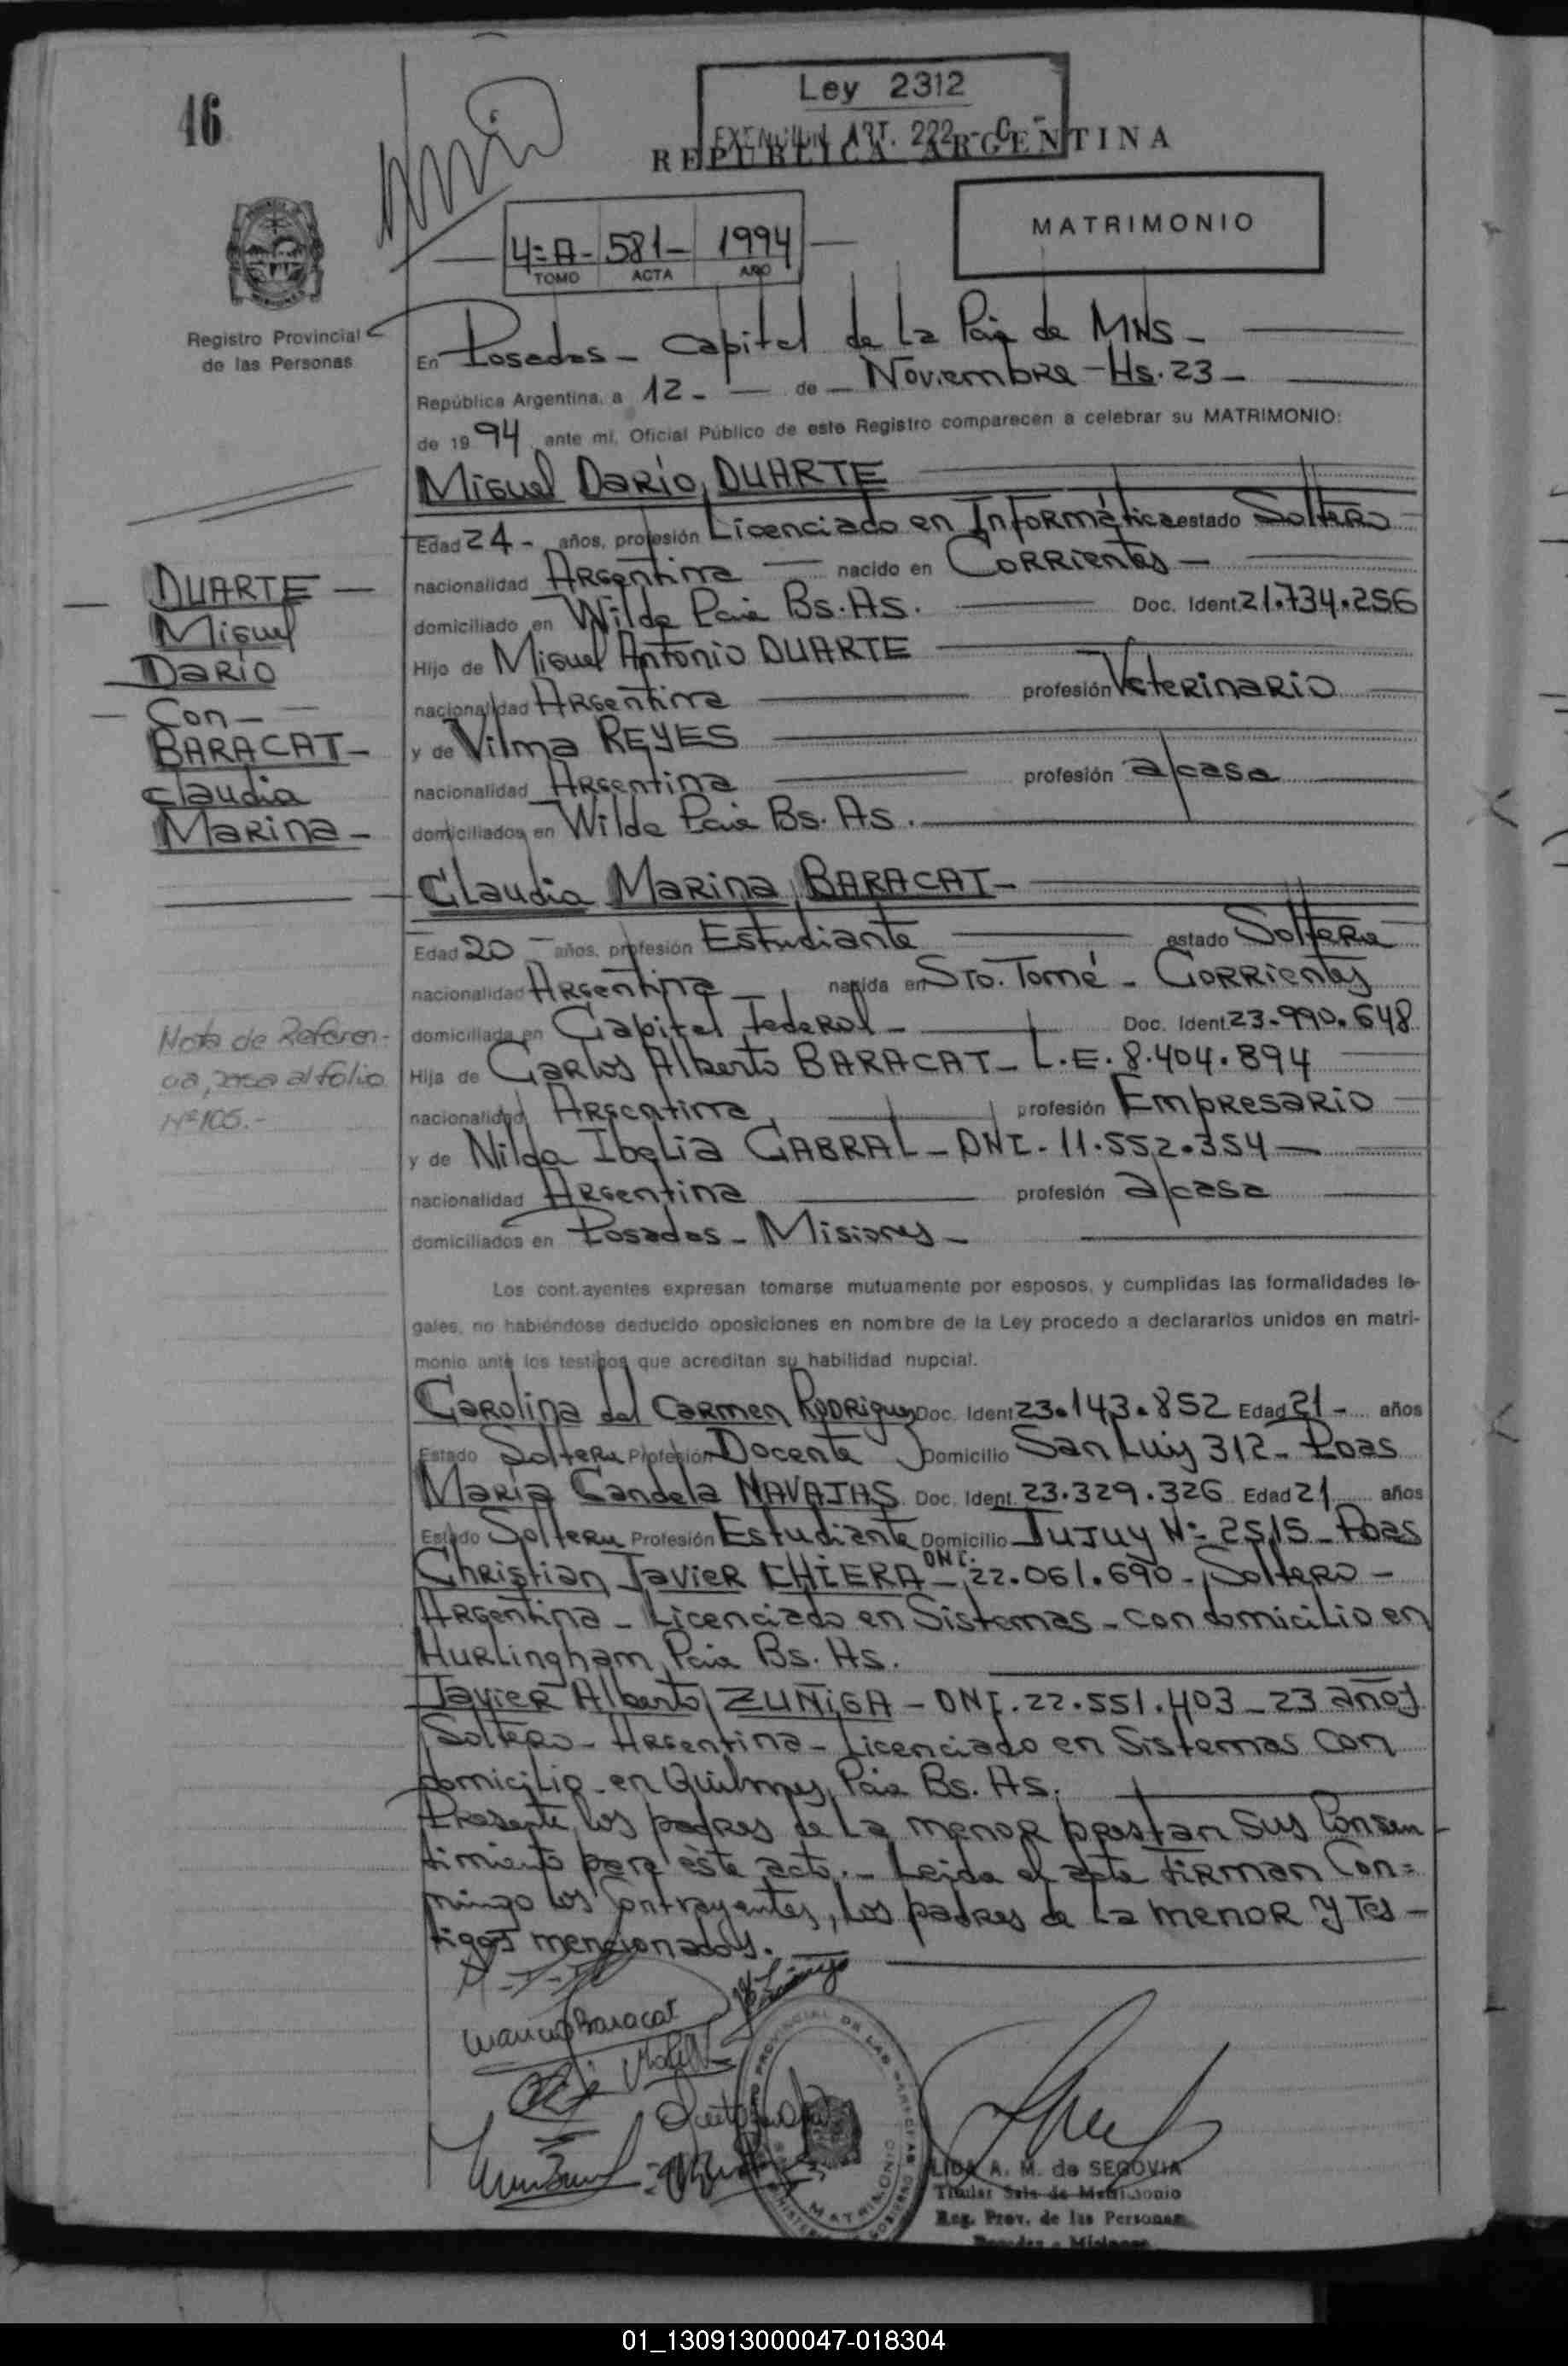 46
Ley 2312
EXENCION ART. 222 - C -
REPUBLICA ARGENTINA
MATRIMONIO
4=A- 581- 1994
TOMO ACTA AÑO
Registro Provincial
de las Personas
En Posadas - Capital de La Pcia de MNS -
República Argentina, a 12 - de - Noviembre - Hs. 23 -
de 19 94 ante mi, Oficial Público de este Registro comparecen a celebrar su MATRIMONIO:
Miguel Darío, DUARTE
Edad 24 - años, profesión Licenciado en Informática estado Soltero
nacionalidad Argentina nacido en Corrientes -
domiciliado en Wilde Pcia Bs. As. Doc. Ident. 21.734.256
Hijo de Miguel Antonio DUARTE
nacionalidad Argentina profesión Veterinario
y de Vilma REYES
nacionalidad Argentina profesión a/casa
domiciliados en Wilde Pcia Bs. As.
Claudia Marina, BARACAT -
Edad 20 - años, profesión Estudiante estado Soltera
nacionalidad Argentina nacida en Sto. Tomé - Corrientes
domiciliada en Capital Federal - Doc. Ident. 23.990.648
Hija de Carlos Alberto BARACAT - L.E. 8.404.894
nacionalidad Argentina profesión Empresario
y de Nilda Ibelia CABRAL - DNI - 11.552.354 -
nacionalidad Argentina profesión a/casa
domiciliados en Posadas - Misiones -
Los contrayentes expresan tomarse mutuamente por esposos, y cumplidas las formalidades le-
gales, no habiéndose deducido oposiciones en nombre de la Ley procedo a declararlos unidos en matri-
monio ante los testigos que acreditan su habilidad nupcial.
Carolina del Carmen Rodriguez Doc. Ident. 23.143.852 Edad 21 - años
Estado Soltera Profesión Docente Domicilio San Luis 312 - Pdas
María Candela NAVAJAS Doc. Ident. 23.329.326 Edad 21 años
Estado Soltera Profesión Estudiante Domicilio Jujuy Nº 2515 - Pdas
Christian Javier CHIERA - DNI. 22.061.690 -, Soltero -
Argentina - Licenciado en Sistemas - con domicilio en
Hurlingham, Pcia Bs. As.
Javier Alberto, ZUÑIGA - DNI. 22.551.403 - 23 años
Soltero - Argentina - Licenciado en Sistemas con
domicilio en Quilmes, Pcia Bs. As.
Presente los padres de La menor prestan sus Consen-
timiento para éste acto. - Leida el acta firman Con=
migo los Contrayentes, los padres de La menor y Tes-
tigos mencionados.
DUARTE -
Miguel
Darío
- Con -
BARACAT -
Claudia
Marina -
Nota de Referen-
cia, pasa al folio
Nº 105.-
Baracat
PROVINCIAL DE LAS
MATRIMONIO
LIDA A. M. de SEGOVIA
Titular Sala de Matrimonio
Reg. Prov. de las Personas
Posadas - Misiones
01_130913000047-018304